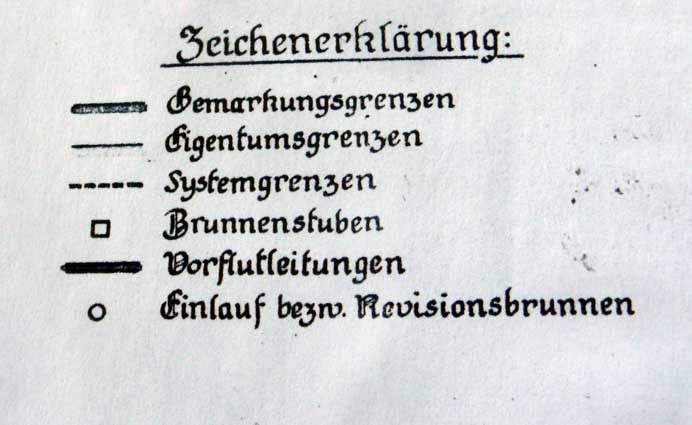 Zeichenerklärung:
Gemarkungsgrenzen
Eigentumsgrenzen
Systemgrenzen
Brunnenstuben
Vorflutleitungen
Einlauf bezw. Revisionsbrunnen